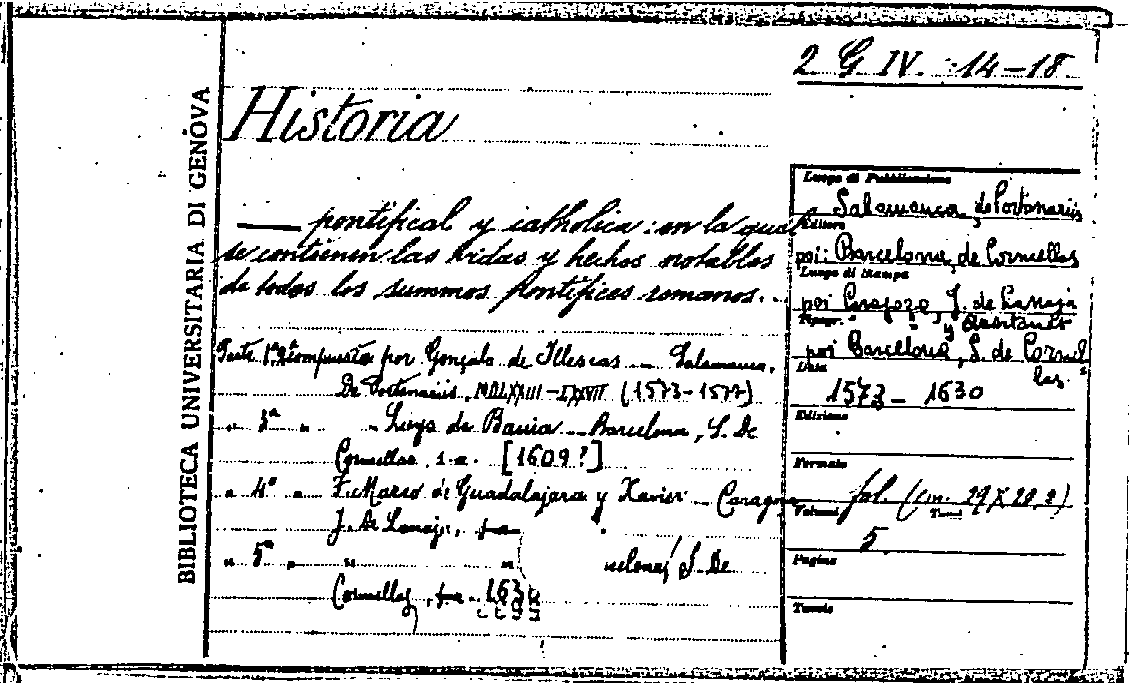 2 G IV. 14-18
BIBLIOTECA UNIVERSITARIA DI GENOVA
Historia
— pontifical y catholica: en la qual
se contienen las vidas y hechos notables
de todos los summos pontifices romanos.
Parte 1ª 2ª compuesta por Gonçalo de Illescas — Salamanca,
De Portonariis, MDLXXIII-LXXVII (1573-1577)
" 3ª " - Luys de Bauia - Barcelona, S. De
Cornellas, s.a. [1609?]
" 4ª " - F. Marco de Guadalajara y Xavier - Caragoça
J. De Lanaja,
" 5ª " " " S. De
Cornellas, 1630
Luogo di Pubblicazione
Salamanca, de Portonariis
Editore
poi: Barcelona, de Cornellas
Luogo di stampa
poi Caragoza, J. de Lanaja
Tipogr. y Quartanet
poi Barcelona, S. de Cornel
las.
Data
1573 - 1630
Edizione
Formato
fol. (cm. 29 X 20,2)
Volumi Tomi
5
Pagine
Tavole